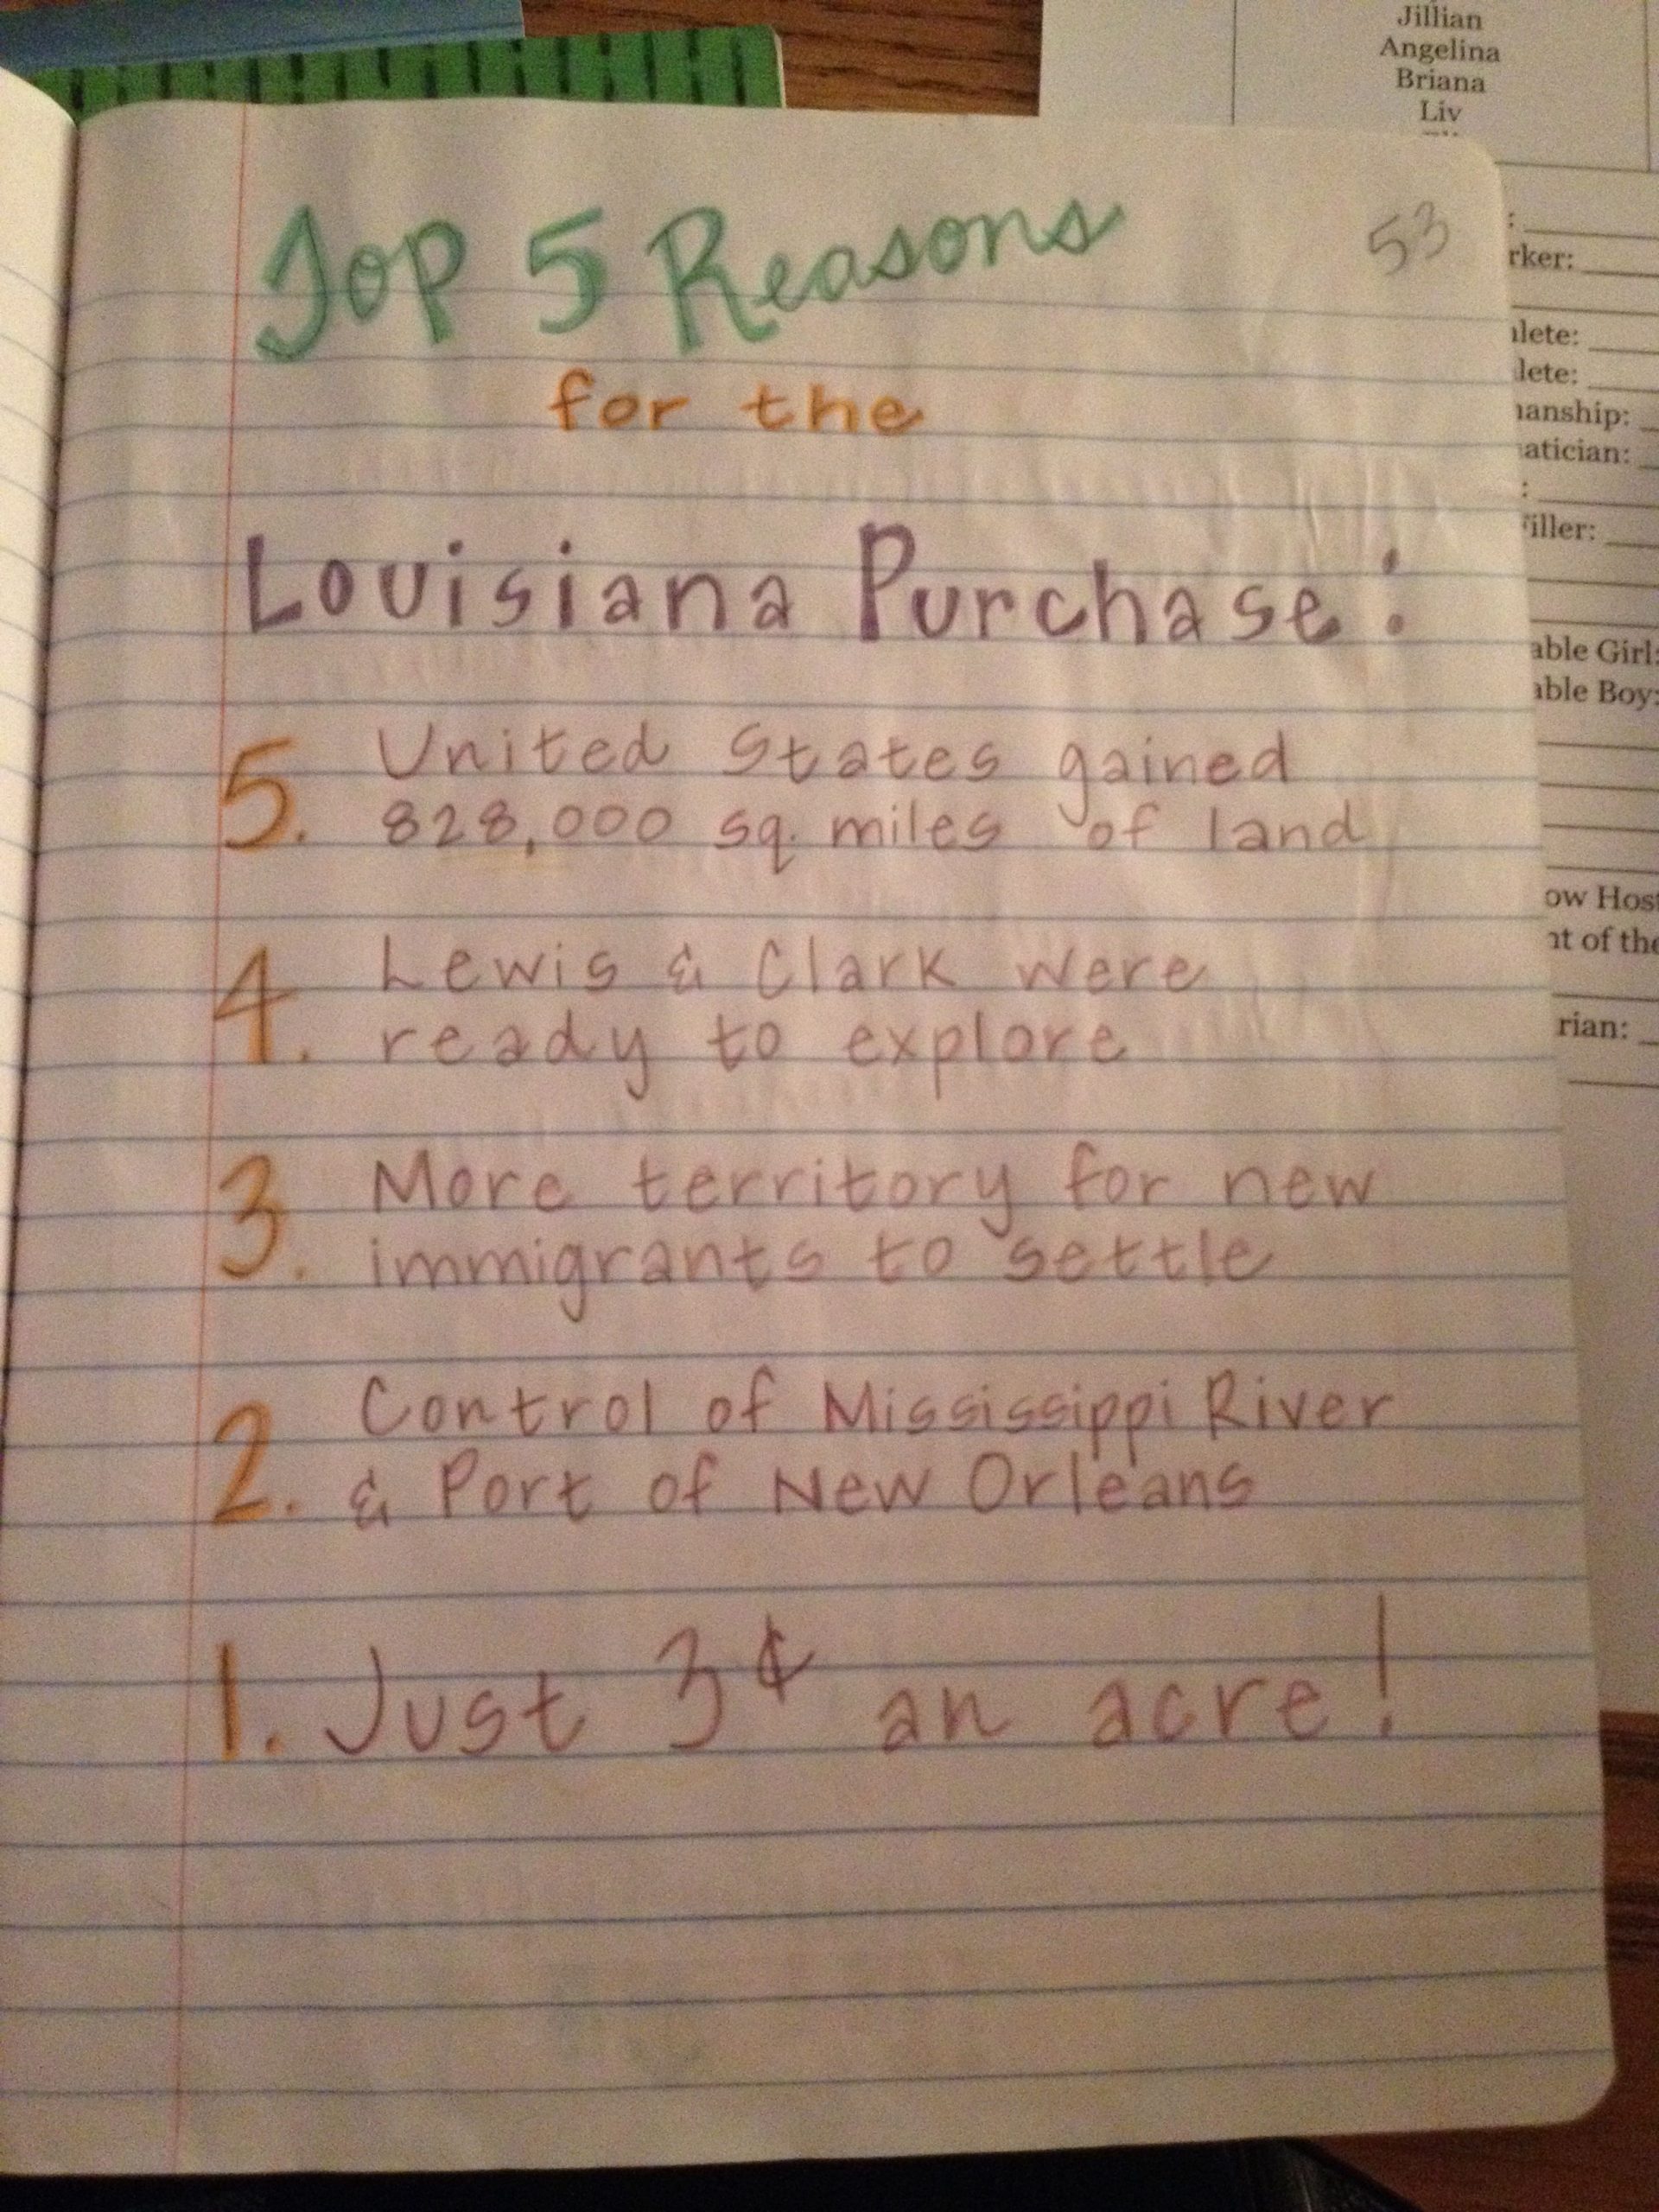 Jillian
Angelina
Briana
Liv
53
Top 5 Reasons
for the
Louisiana Purchase:
5. United States gained
828,000 sq. miles of land
4. Lewis & Clark were
ready to explore
3. More territory for new
immigrants to settle
2. Control of Mississippi River
& Port of New Orleans
1. Just 3¢ an acre!
:
rker:
lete:
lete:
manship:
atician:
:
iller:
able Girl:
able Boy:
ow Host
nt of the
rian: